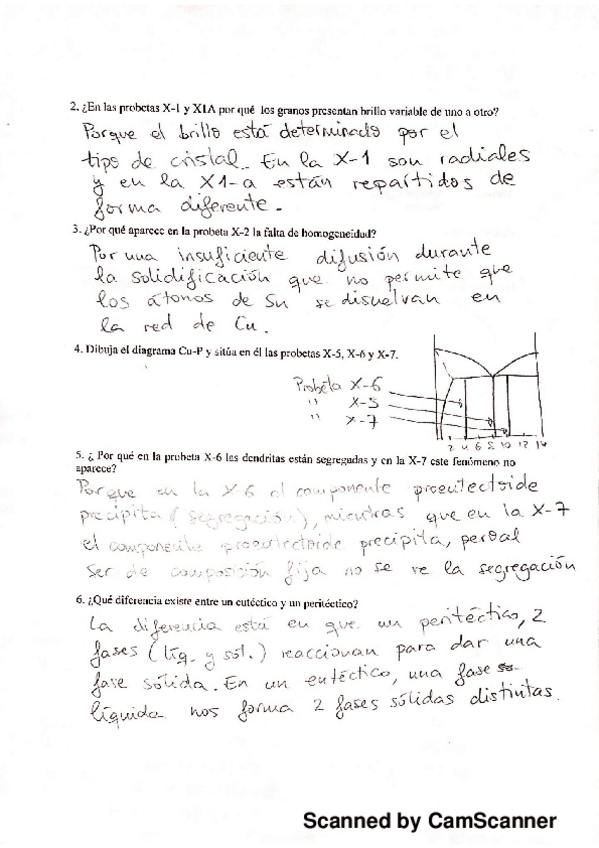 2. ¿En las probetas X-1 y X1A por qué los granos presentan brillo variable de uno a otro?
Porque el brillo está determinado por el
tipo de cristal. En la X-1 son radiales
y en la X1-a están repartidos de
forma diferente.
3. ¿Por qué aparece en la probeta X-2 la falta de homogeneidad?
Por una insuficiente difusión durante
la solidificación que no permite que
los átonos de Sn se disuelvan en
la red de Cu.
4. Dibuja el diagrama Cu-P y sitúa en él las probetas X-5, X-6 y X-7.
Probeta X-6
" X-5
" X-7
2 4 6 8 10 12 14
5. ¿ Por qué en la probeta X-6 las dendritas están segregadas y en la X-7 este fenómeno no
aparece?
Porque en la X6 el componente proeutectoide
precipita (segregación), mientras que en la X-7
el componente proeutectoide precipita, pero al
ser de composición fija no se ve la segregación
6. ¿Qué diferencia existe entre un eutéctico y un peritéctico?
La diferencia está en que un peritéctico, 2
fases (líq. y sól.) reaccionan para dar una
fase sólida. En un eutéctico, una fase
líquida nos forma 2 fases sólidas distintas.
Scanned by CamScanner